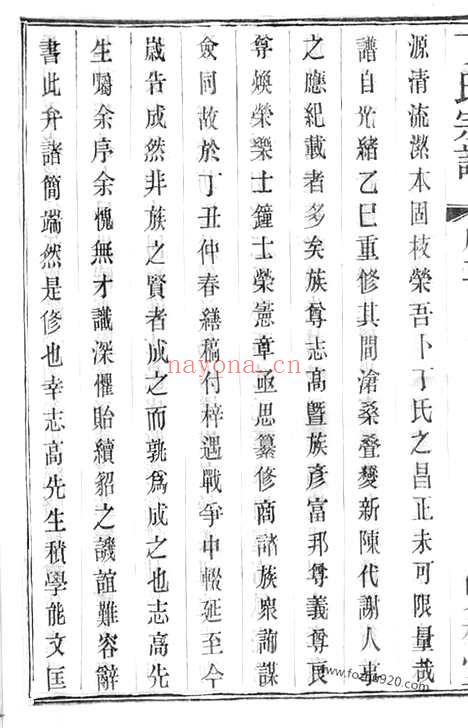 氏宗譜
源清流潔本固枝榮吾卜丁氏之昌正未可限量哉
譜自光緒乙巳重修其間滄桑叠變新陳代謝人事
之應紀載者多矣族尊志高暨族彥富邦尊義尊良
尊煥榮樂士鐘士榮憲章亟思纂修商諸族衆詢謀
僉同故於丁丑仲春繕稿付梓遇戰爭中輟延至今
歲告成然非族之賢者成之而孰爲成之也志高先
生囑余序余愧無才識深懼貽續貂之譏誼難容辭
書此弁諸簡端然是修也幸志高先生積學能文匡
nayona.cn
www.fozhu920.com